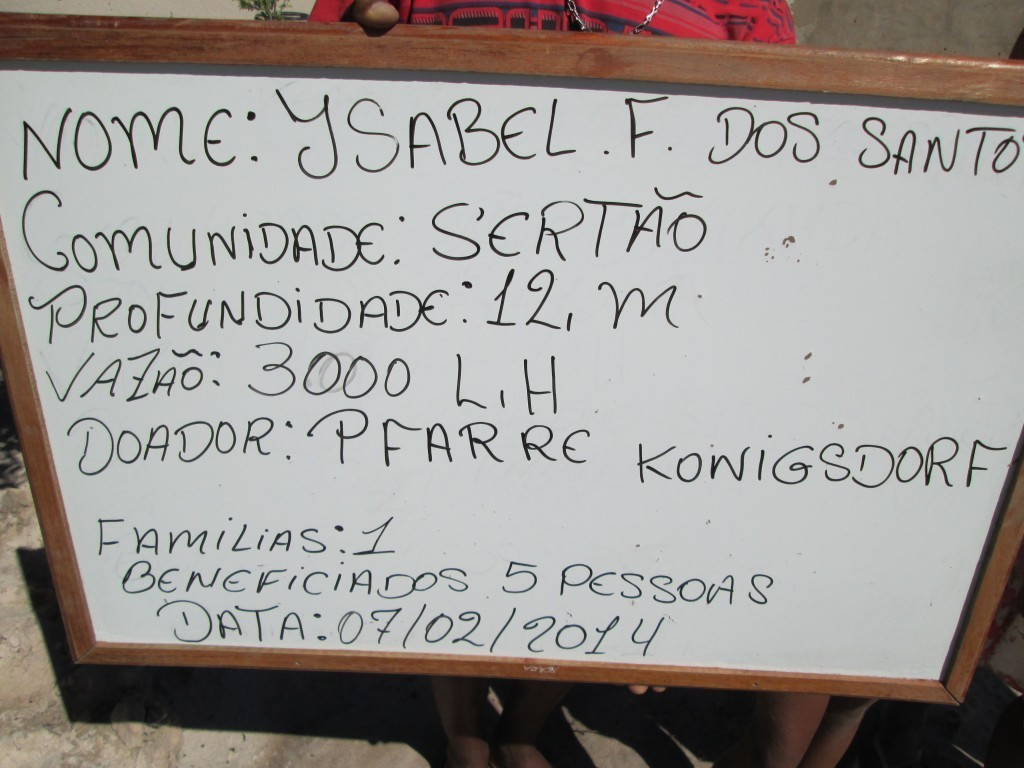 NOME: YSABEL. F. DOS SANTO
COMUNIDADE: SERTÃO
PROFUNDIDADE: 12, m
VAZÃO: 3000 L.H
DOADOR: PFARRE KONIGSDORF
FAMILIAS: 1
BENEFICIADOS 5 PESSOAS
DATA: 07/02/2014